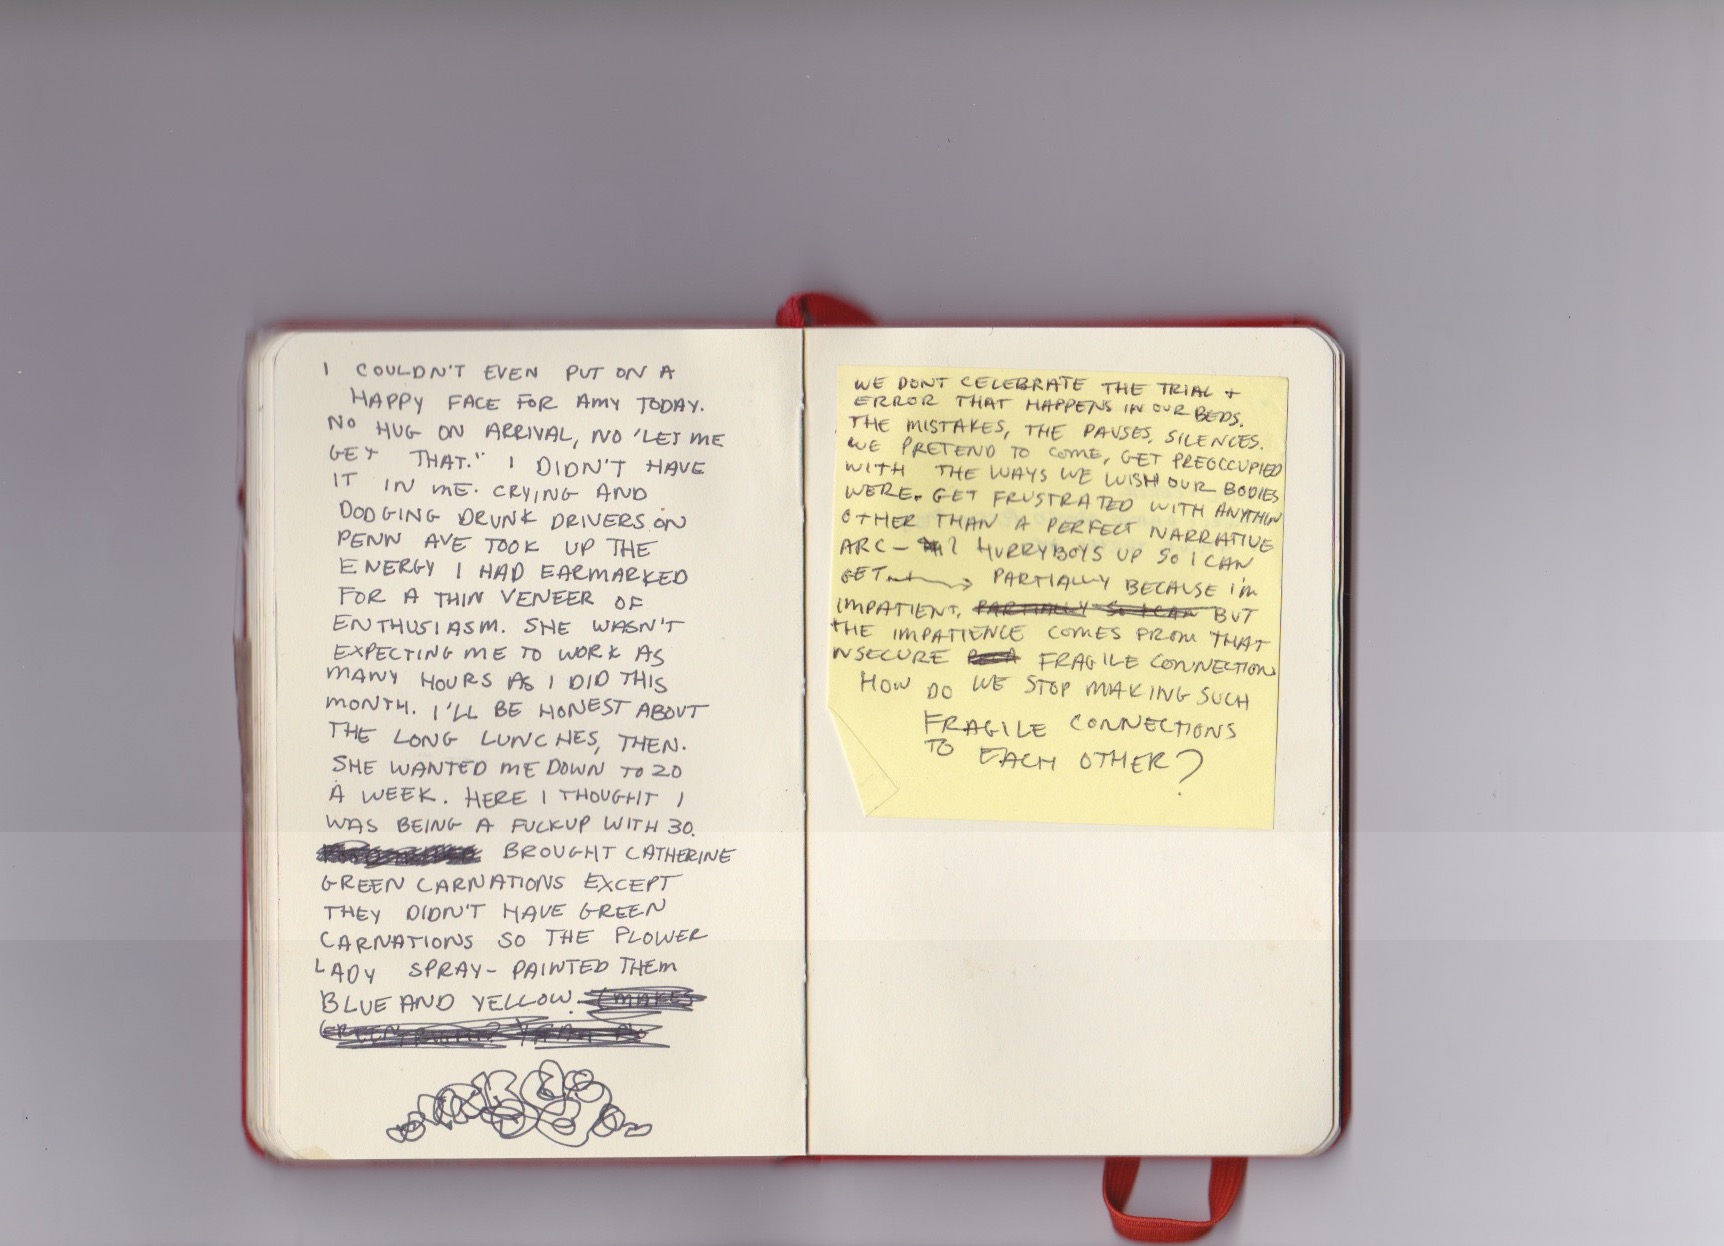 I COULDN'T EVEN PUT ON A
HAPPY FACE FOR AMY TODAY.
NO HUG ON ARRIVAL, NO 'LET ME
GET THAT." I DIDN'T HAVE
IT IN ME. CRYING AND
DODGING DRUNK DRIVERS ON
PENN AVE TOOK UP THE
ENERGY I HAD EARMARKED
FOR A THIN VENEER OF
ENTHUSIASM. SHE WASN'T
EXPECTING ME TO WORK AS
MANY HOURS AS I DID THIS
MONTH. I'LL BE HONEST ABOUT
THE LONG LUNCHES, THEN.
SHE WANTED ME DOWN TO 20
A WEEK. HERE I THOUGHT I
WAS BEING A FUCKUP WITH 30.
BROUGHT CATHERINE
GREEN CARNATIONS EXCEPT
THEY DIDN'T HAVE GREEN
CARNATIONS SO THE FLOWER
LADY SPRAY-PAINTED THEM
BLUE AND YELLOW. (MAKES
GREEN
WE DONT CELEBRATE THE TRIAL +
ERROR THAT HAPPENS IN OUR BEDS.
THE MISTAKES, THE PAUSES, SILENCES.
WE PRETEND TO COME, GET PREOCCUPIED
WITH THE WAYS WE WISH OUR BODIES
WERE. GET FRUSTRATED WITH ANYTHIN
OTHER THAN A PERFECT NARRATIVE
ARC - I HURRY BOYS UP SO I CAN
GET PARTIALLY BECAUSE I'M
IMPATIENT. PARTIALLY SO I CAN BUT
THE IMPATIENCE COMES FROM THAT
NSECURE FRAGILE CONNECTION
HOW DO WE STOP MAKING SUCH
FRAGILE CONNECTIONS
TO EACH OTHER?